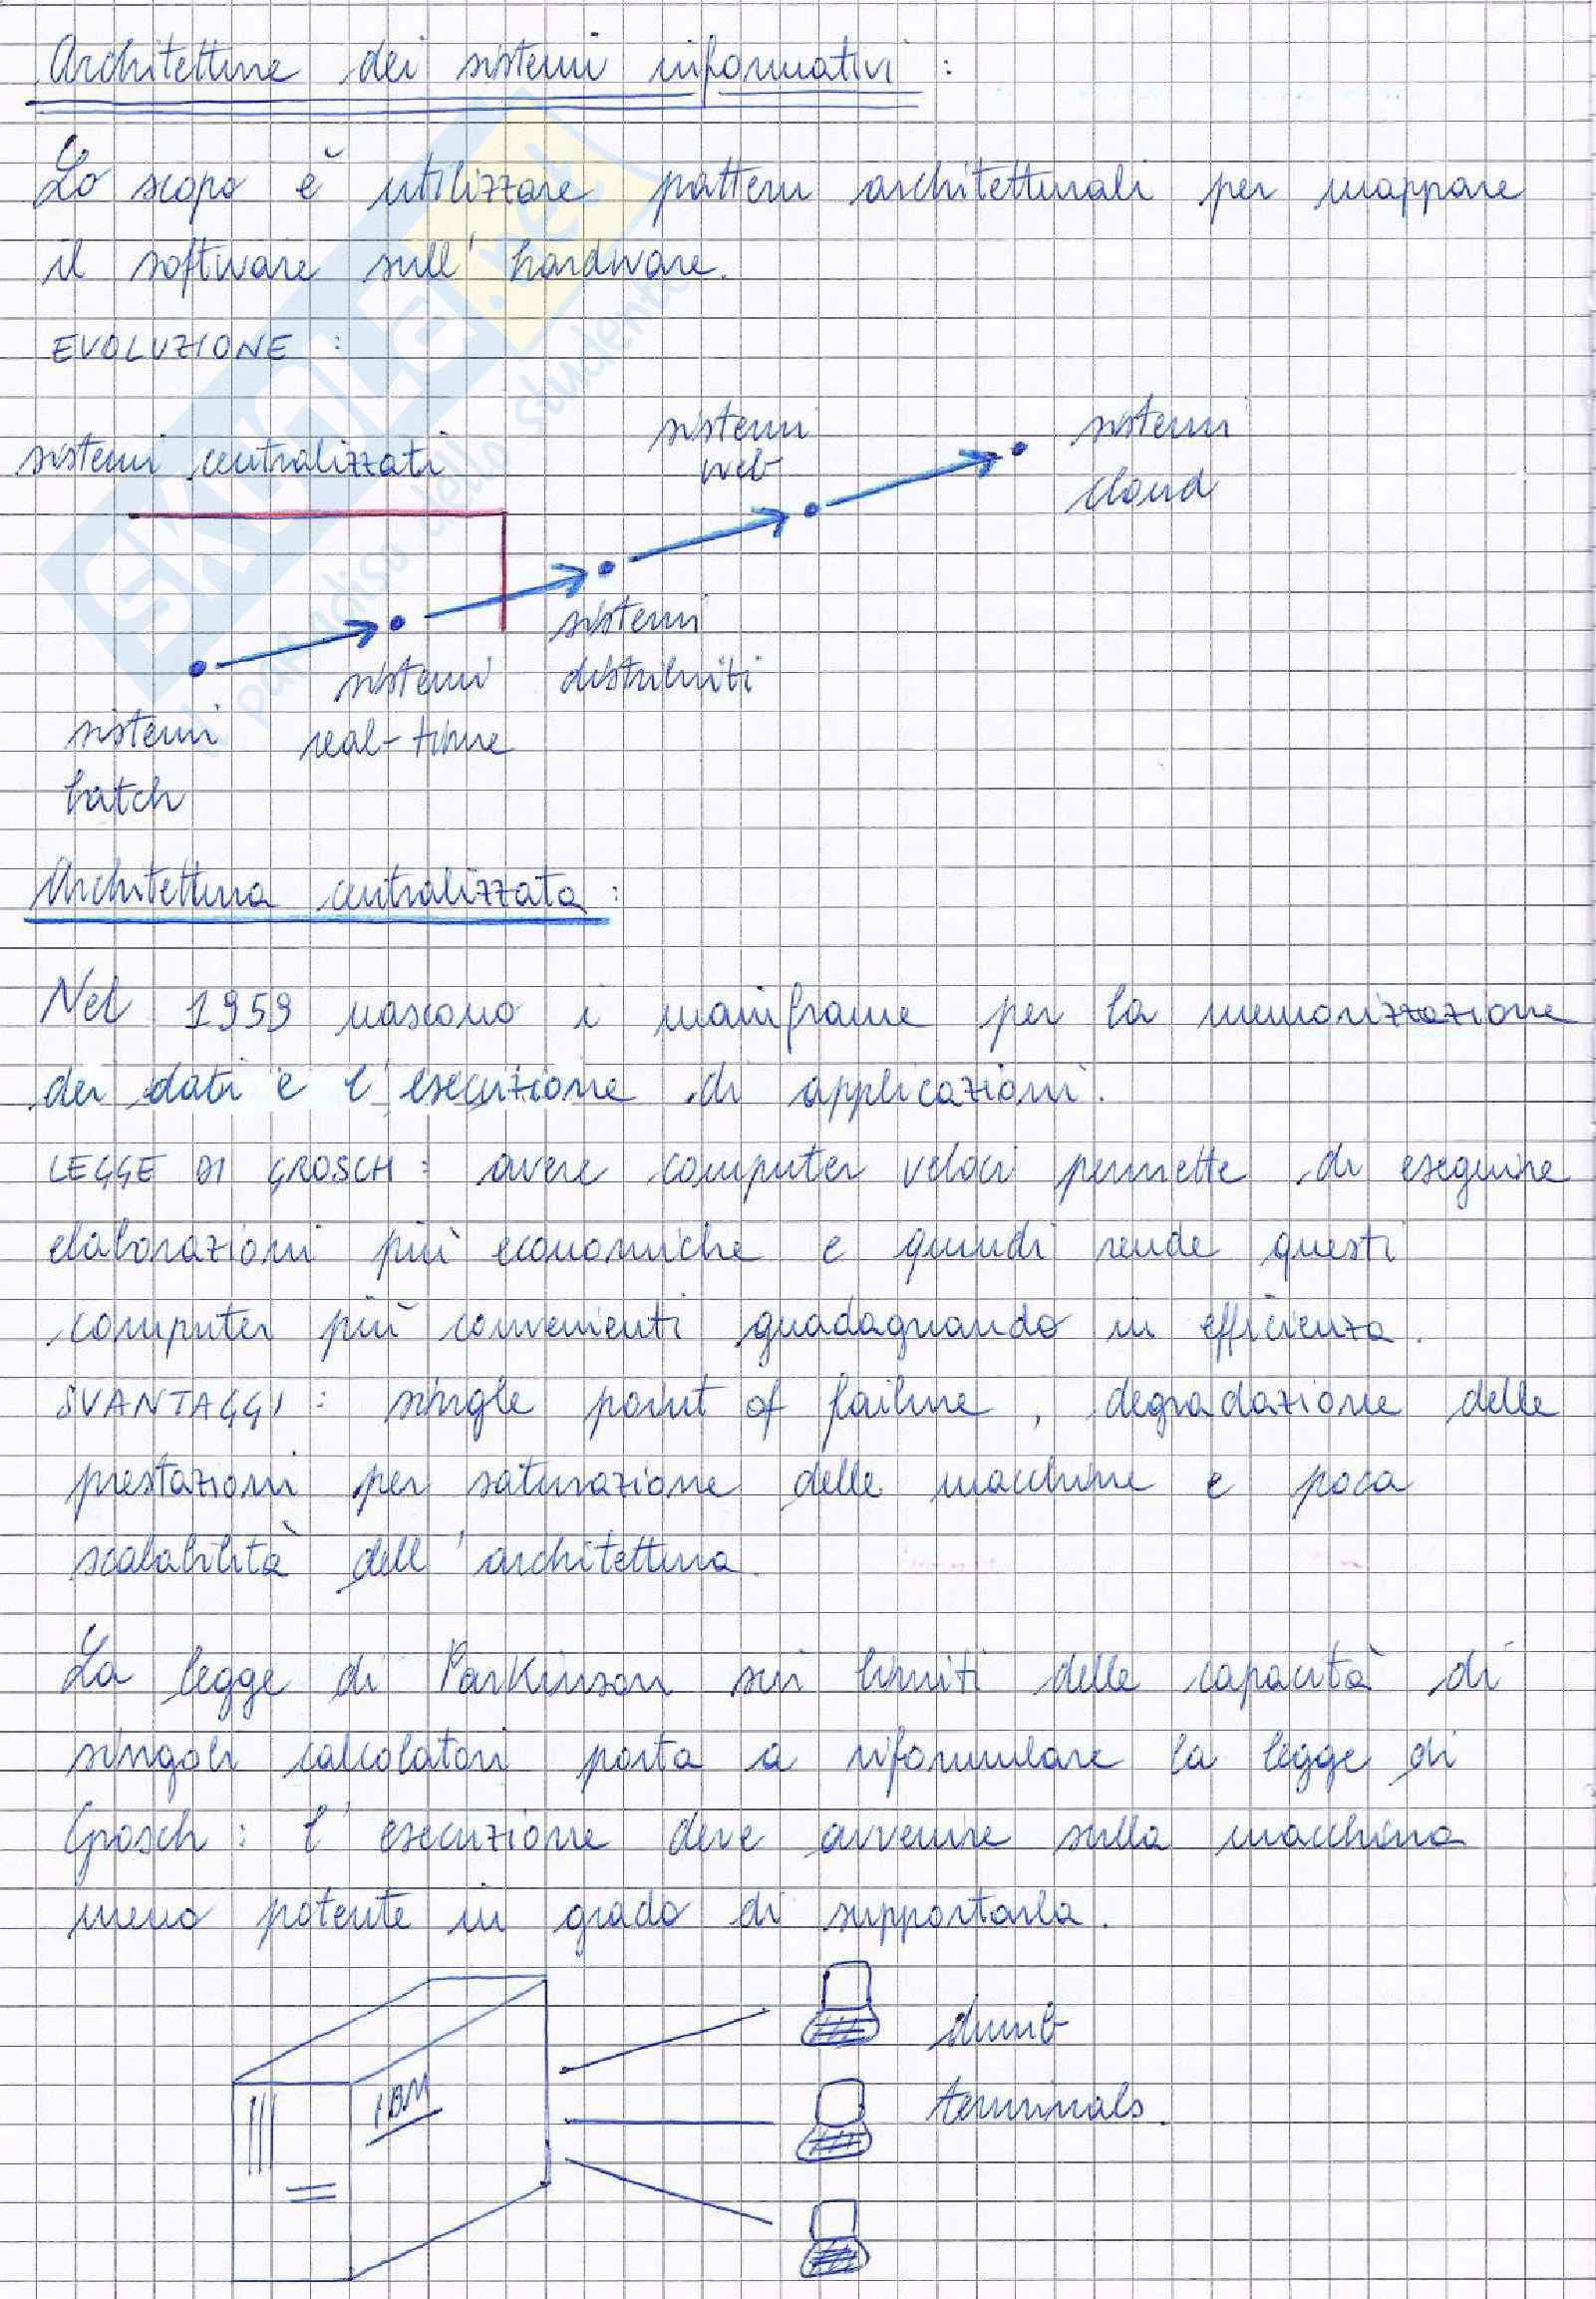 Architetture dei sistemi informativi :
Lo scopo è utilizzare pattern architetturali per mappare
il software sull'hardware.
EVOLUZIONE :
sistemi centralizzati
sistemi
web
sistemi
cloud
sistemi
distribuiti
sistemi
real-time
sistemi
batch
Architettura centralizzata :
Nel 1959 nascono i mainframe per la memorizzazione
dei dati e l'esecuzione di applicazioni.
LEGGE DI GROSCH : avere computer veloci permette di eseguire
elaborazioni più economiche e quindi rende questi
computer più convenienti guadagnando in efficienza.
SVANTAGGI : single point of failure, degradazione delle
prestazioni per saturazione delle macchine e poca
scalabilità dell'architettura.
La legge di Parkinson sui limiti delle capacità di
singoli calcolatori porta a riformulare la legge di
Grosch : l'esecuzione deve avvenire sulla macchina
meno potente in grado di supportarla.
IBM
dumb
terminals.
SKUOLA.net
il paradiso dello studente